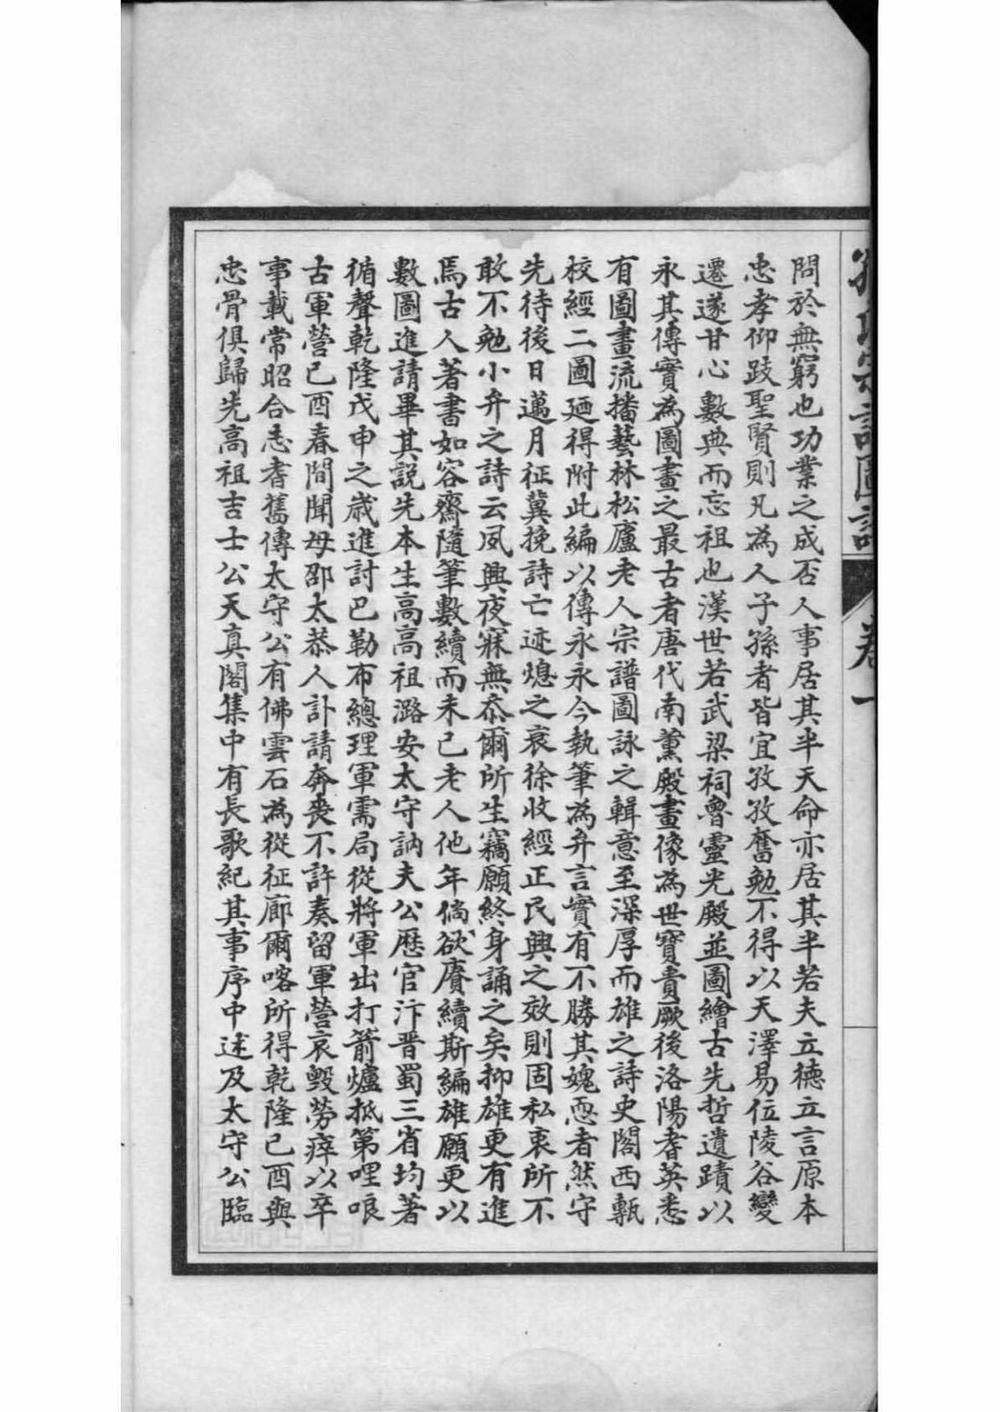 宗譜圖詠
卷一
問於無窮也功業之成否人事居其半天命亦居其半若夫立德立言原本
忠孝仰跂聖賢則凡為人子孫者皆宜孜孜奮勉不得以天澤易位陵谷變
遷遂甘心數典而忘祖也漢世若武梁祠魯靈光殿並圖繪古先哲遺蹟以
永其傳實為圖畫之最古者唐代南薰殿畫像為世寶貴厥後洛陽耆英悉
有圖畫流播藝林松廬老人宗譜圖詠之輯意至深厚而雄之詩史閣西甎
校經二圖廼得附此編以傳永永今執筆為弁言實有不勝其媿恧者然守
先待後日邁月征冀挽詩亡迹熄之哀徐收經正民興之效則固私衷所不
敢不勉小弁之詩云夙興夜寐無忝爾所生竊願終身誦之矣抑雄更有進
焉古人著書如容齋隨筆數續而未已老人他年倘欲賡續斯編雄願更以
數圖進請畢其說先本生高高祖潞安太守訥夫公歷官汴晋蜀三省均著
循聲乾隆戊申之歲進討巴勒布總理軍需局從將軍出打箭爐抵第哩哴
古軍營己酉春間聞母邵太恭人訃請奔喪不許奏留軍營哀毀勞瘁以卒
事載常昭合志耆舊傳太守公有佛雲石為從征廓爾喀所得乾隆己酉與
忠骨俱歸先高祖吉士公天真閣集中有長歌紀其事序中述及太守公臨